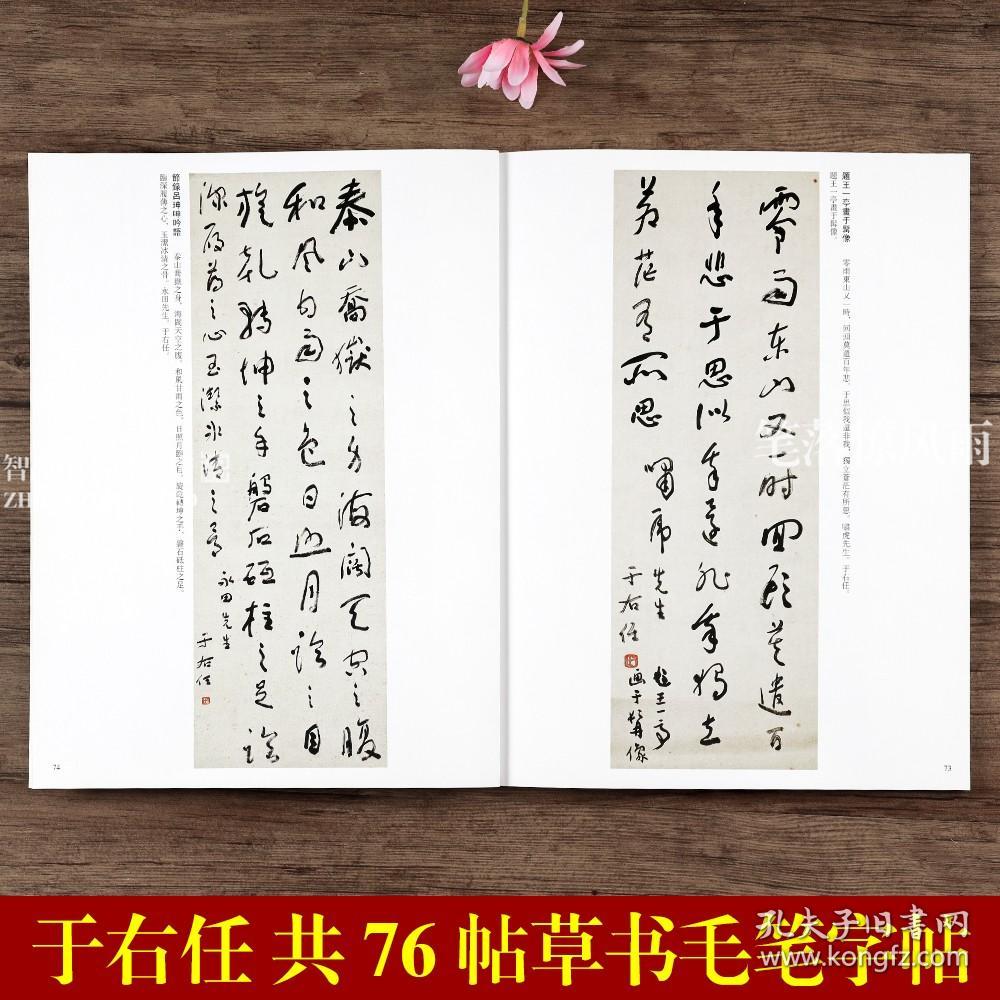 題王一亭畫于髯像　零雨東山又一時，回頭莫遣百年悲。于思似我還非我，獨立蒼茫有所思。嘯虎先生。于右任。
題王一亭畫于髯像。
零雨東山又一时回頭莫遣百
年悲于思似我還非我獨立
蒼茫有所思　嘯虎先生
于右任
題王一亭
画于髯像
73
泰山喬嶽之身海闊天空之腹
和風甘雨之色日照月臨之目
旋乾轉坤之手磐石砥柱之足臨
深履薄之心玉潔冰清之骨
永田先生
于右任
節錄呂坤呻吟語　泰山喬嶽之身，海闊天空之腹，和風甘雨之色，日照月臨之目，旋乾轉坤之手，磐石砥柱之足，
臨深履薄之心，玉潔冰清之骨。永田先生。于右任。
74
于右任 共 76 帖草书毛笔字帖
孔夫子旧書网
www.kongfz.com